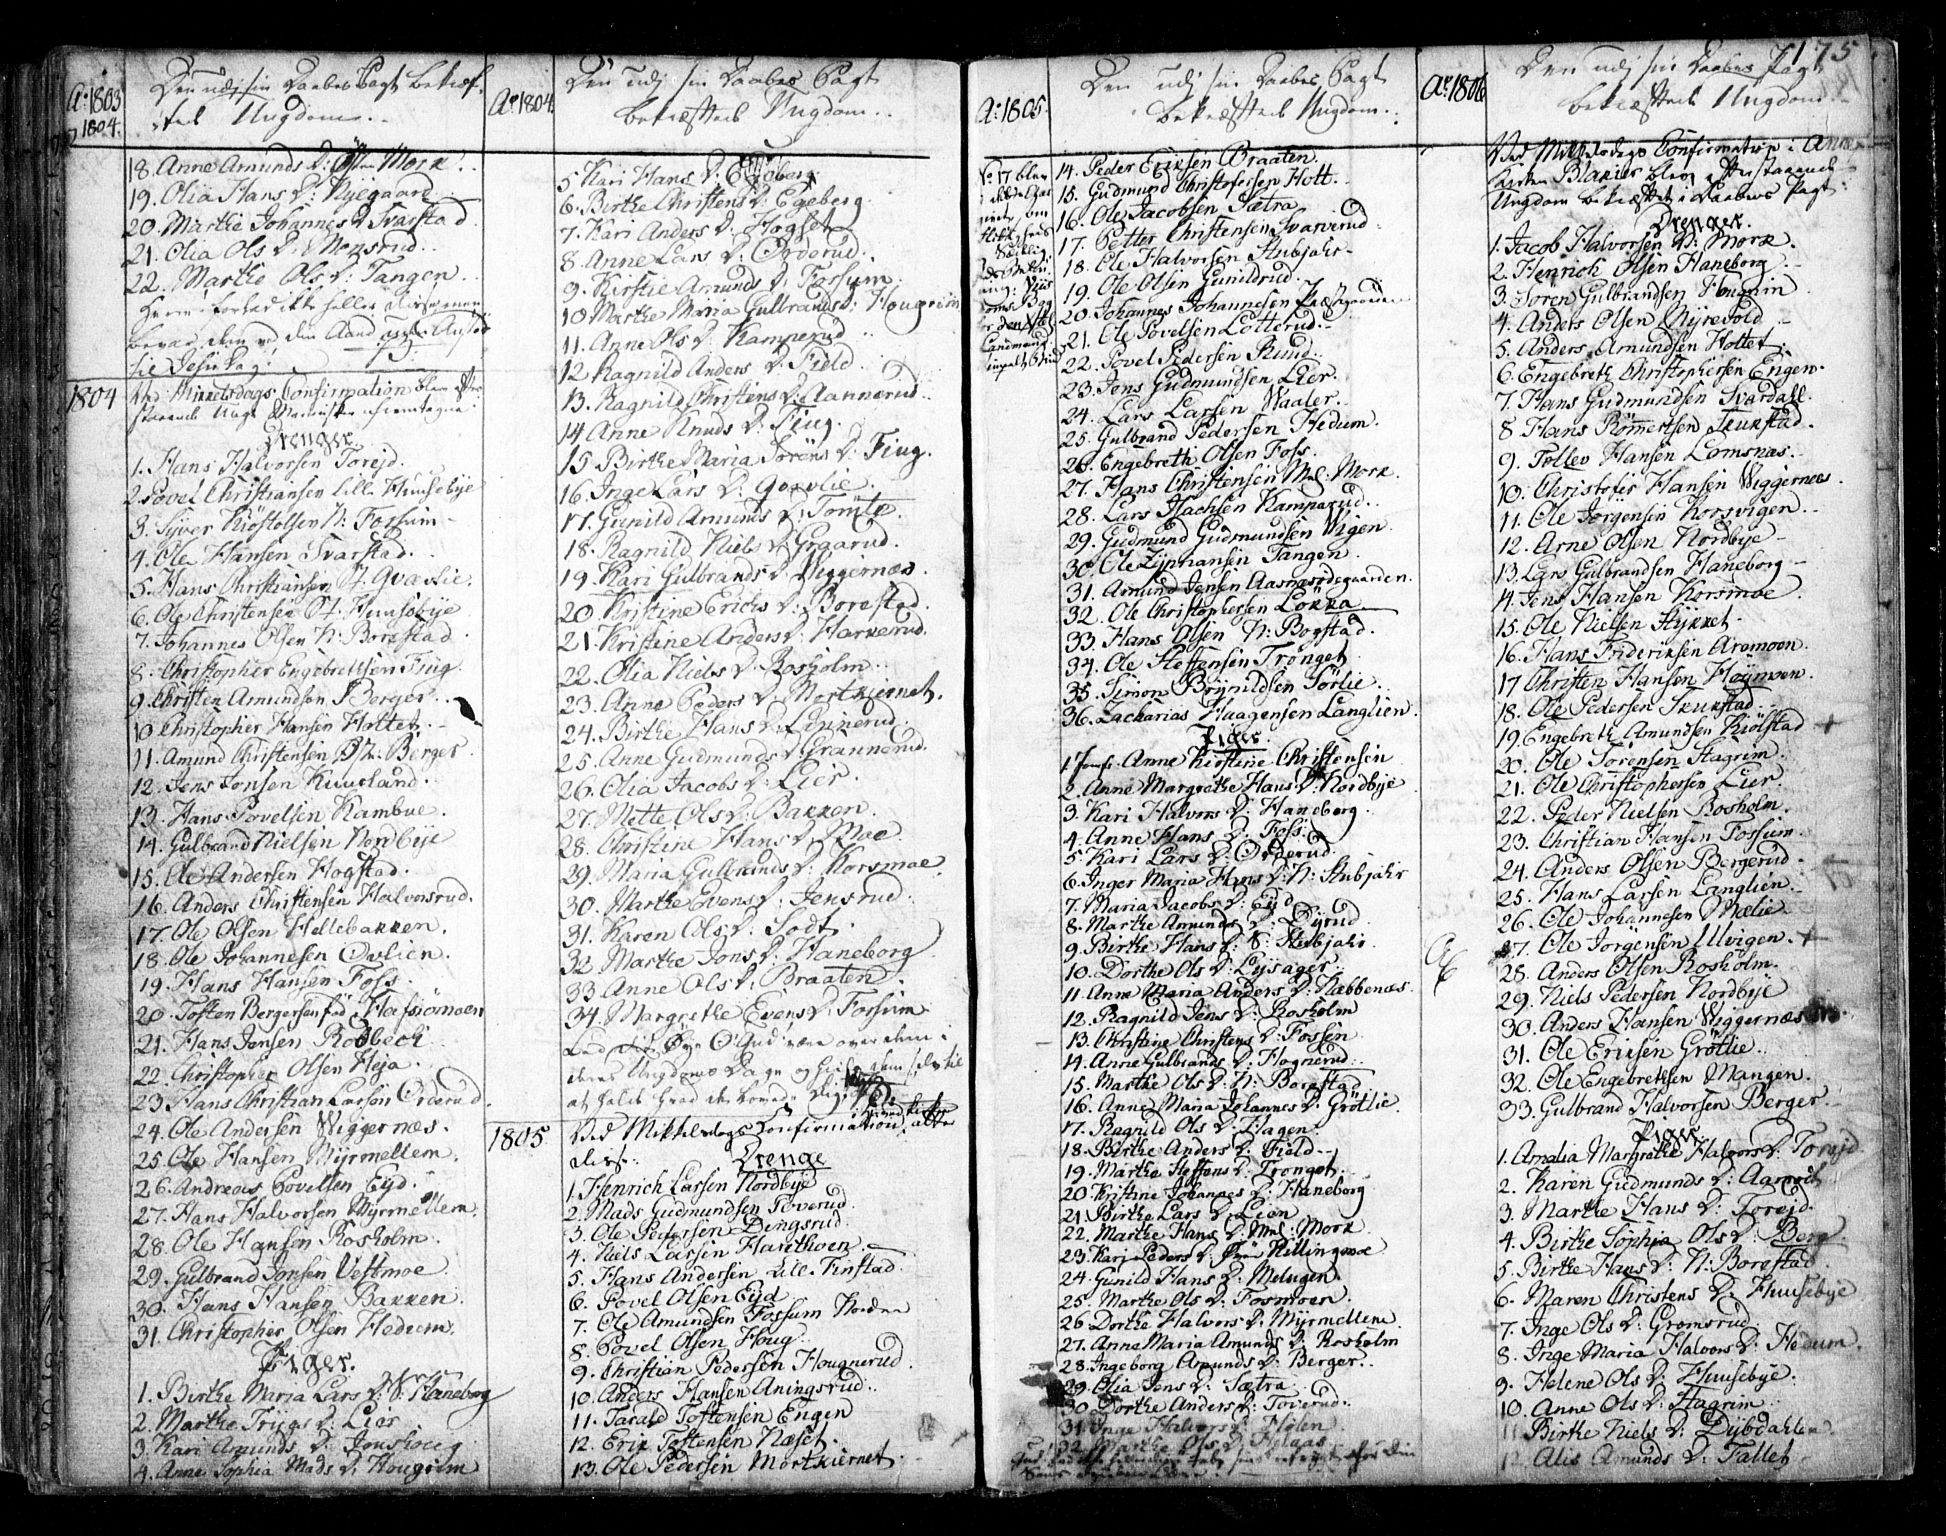 175
Ao: 1803
1804.
Den udj sin Daabes Pagt bekræf-
tet Ungdom..
18. Anne Amunds D: Mork.
19. Olia Hans D: Nyegaard
20. Marthe Johannes D Svarstad
21. Olia Ols D: Monsrud..
22. Marthe Ols D: Tangen
1804
Ved Mikkelsdags Confirmation blev efter
staaende
Drenger
1. Hans Halvorsen Torejd.
2. Povel Christiansen lille Huusebye
3. Syver Kiøstolsen N: Fossum
4. Ole Hansen Svarstad.
5. Hans Christiansen St. Qvavlie.
6. Ole Christensen St. Huusebye
7. Johannes Olsen N: Borestad
8. Christopher Engebretsen Tiug.
9. Christen Amundsen Berger
10. Christopher Hansen Holtet.
11. Amund Christensen Berger
12. Jens Jonsen Kuusland.
13. Hans Povelsen Kambue.
14. Gulbrand Nielsen Nordbye
15. Ole Andersen Hogstad.
16. Anders Christensen Halvorsrud.
17. Ole Olsen Hellebakken.
18. Ole Johannesen Ovlien.
19. Hans Hansen Foss.
20. Tosten Bergersen
21. Hans Jensen Rodbech
22. Christopher Olsen Heja.
23. Hans Christian Larsen Orderud
24. Ole Andersen Wiggernæs.
25. Ole Hansen Myrmellem.
26. Andreas Povelsen Eyd.
27. Hans Halvorsen Myrmellem
28. Ole Hansen Rosholm.
29. Gulbrand Jonsen Vestmoe
30. Hans Hansen Bakken.
31. Christopher Olsen Hedum.
Piger.
1. Birthe Maria Lars D: Haneborg
2. Marthe Trygs D: Lier
3. Kari Amunds D:
4. Anne Sophia Mads D: Hougrim
Ao: 1804
Den udj sin Daabes Pagt
bekræftede Ungdom..
5 Kari Hans D. Egeberg
6. Birthe Christens D: Egeberg.
7. Kari Anders D. Hogset
8. Anne Lars D: Orderud.
9. Kirstie Amunds D: Fossum
10. Marthe Maria Gulbrands D: Hougrim
11. Anne Ols D: Kamperud
12 Ragnild Anders D. Field
13. Ragnild Christens D: Aannerud..
14 Anne Knuds D. Tiug.
15 Birthe Maria Sørens D. Tiug.
16. Inge Lars D: Qvavlie.
17. Gunild Amunds D: Tomte.
18. Ragnild Niels D Graarud.
19. Kari Gulbrands D: Wiggernæs.
20 Kristine Erichs D: Borestad.
21. Kristine Anders D: Harkerud.
22. Olia Niels D: Rosholm
23. Anne Peders D: Mortkiernet.
24. Birthe Hans D: Linnerud.
25. Anne Gudmunds D Grannerud.
26. Olia Jacobs D: Lier.
27. Mette Ols D: Bakken.
28. Christine Hans D. Moe
29. Maria Gulbrands D: Korsmoe.
30. Marthe Evens D: Jensrud
31. Karen Ols D: Sodt.
32 Marthe Jons D: Haneborg
33 Anne Ols D: Braaten
34. Margrethe Evens D: Fossum
Lad dit Øye O Gud være over dem i
deres Ungdoms Dage og
at holde hvad de lovede dig.
1805
Ved Mikkelsdags Confirmation
Drenge
1. Henrich Larsen Nordbye
2. Mads Gudmundsen Toverud.
3. Ole Pedersen Dengsrud.
4. Niels Larsen Harethoen.
5. Hans Andersen Lill. Finstad.
6. Povel Olsen Eyd
7. Ole Amundsen Fossum Norden
8. Povel Olsen Houg.
9. Christian Pedersen Hougnerud.
10. Anders Hansen Aningsrud.
11. Tarald Tostensen Engen
12. Erik Tostensen Næset.
13. Ole Pedersen Mortkiernet.
Ao: 1805.
Den udj sin Daabes Pagt
bekræftede Ungdom.
No 17 blev
14. Peder Eriksen Braaten.
15. Gudmund Christofersen Holt.
16. Ole Jacobsen Sætra
17. Petter Christensen Svarverud.
18. Ole Halvorsen Stubjahr
19. Ole Olsen Gunildrud.
20. Johannes Johannesen Præstegaarden
21. Ole Povelsen Lotterud.
22. Povel Pedersen Ruud.
23. Jens Gudmundsen Lier.
24. Lars Larsen Vaaler.
25. Gulbrand Pedersen Hedum.
26. Engebreth Olsen Foss.
27. Hans Christensen Mel: Mork.
28. Lars Isachsen Kamperud.
29. Gudmund Gudmundsen Vigen.
30. Ole Zipriansen Tangen.
31. Amund Jensen Aasmosødegaarden.
32. Ole Christophersen Løkka.
33. Hans Olsen N: Bogstad.
34. Ole Steffensen Tronget
35. Simon Brynildsen Sørlie.
36. Zacharias Haagensen Langlien.
Piger
1 Jomf. Anne Kiestine Christensen
2. Anne Margrethe Hans D. Nordbye
3. Kari Halvors D. Haneborg
4. Anne Hans D. Foss.
5 Kari Lars D: Orderud.
6. Inger Maria Hans D: N: Stubjahr
7. Maria Jacobs D: Eyd
8. Marthe Amunds D: Dyrud.
9. Birthe Hans D: S: Stubjahr.
10. Dorthe Ols D: Lysager.
11. Anne Maria Anders D: Nabbenæs.
12. Ragnild Jens D: Rosholm
13. Christine Christens D: Fossen
14. Anne Gulbrands D: Hognerud.
15. Marthe Ols D: N: Borestad
16. Anne Maria Johannes D. Grøtlie.
17. Ragnild Ols D: Hagen.
18. Birthe Anders D: Field
19. Marthe Steffens D: Tronget.
20 Kristine Johannes D: Haneborg
21. Birthe Lars D. Lien
22. Marthe Hans D. Mel: Mork
23. Kari Peders D: Killingmoe
24. Gunild Hans D: Melugen.
25. Marthe Ols D: Fosmoen.
26 Dorthe Halvors D: Myrmellem.
27. Anne Maria Amunds D: Rosholm
28. Ingeborg Amunds D: Berger.
29. Olia Jens D: Sætra
30 Dorthe Anders D. Toverud.
31 Inge Halvors D: Hølen
32 Marthe Ols D:
Ao: 1806
Den udj sin Daabes Pagt
bekræftede Ungdom.
Ved Mikkelsdags Confirmation i Annex
Kirken Blakier blev efterstaaende
Ungdom bekræftet i Daabens Pagt:
Drenger.
1. Jacob Halvorsen N: Mork.
2. Henrich Olsen Haneborg
3. Søren Gulbrandsen Hougrim
4. Anders Olsen Nyrevold.
5. Anders Amundsen Holtet
6. Engebreth Christophersen Engen.
7. Hans Gudmundsen Svardall.
8 Hans Rømmertsen Skukstad.
9. Tollev Hansen Lomsnæs.
10. Christofer Hansen Wiggernæs.
11. Ole Jørgensen Korsvigen.
12. Arne Olsen Nordbye
13. Lars Gulbrandsen Haneborg
14. Jens Hansen Korsmoe
15. Ole Nielsen Stykket
16. Hans Frideriksen Aremoen.
17 Christen Hansen Høymoen.
18. Ole Pedersen Skukstad
19. Engebreth Amundsen Kiølstad +
20. Ole Sørensen Stagrim.
21. Ole Christophersen Lier
22. Peder Nielsen Rosholm.
23. Christian Hansen Fossum.
24. Anders Olsen Bergerud.
25. Hans Larsen Langlien.
26. Ole Johannesen Mælie.
27. Ole Jørgensen Ulvigen. +
28. Anders Olsen Rosholm.
29. Niels Pedersen Nordbye
30. Anders Hansen Wiggernæs
31. Ole Eriksen Grøtlie.
32. Ole Engebretsen Mangen.
33. Gulbrand Halvorsen Berger.
Piger
1. Amalia Margrethe Halvors D. Torejd
2. Karen Gudmunds D: Aamodt
3. Marthe Hans D: Torejd.
4. Birthe Sophia Ols D: Berg
5. Birthe Hans D: N: Borestad.
6. Maren Christens D: Huusebye
7. Inge Ols D: Gromsrud.
8. Inge Maria Halvors D: Hedum.
9. Helene Ols D: Huusebye.
10. Anne Ols D: Stagrim
11. Birthe Niels D: Dybdahlen
12. Alis Amunds D: Fallet